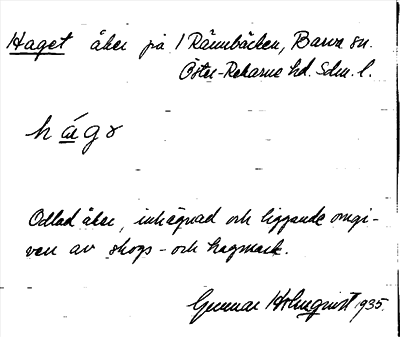 Haget åker på 1 Rännbäcken, Barva sn.
Öster-Rekarne hd. Sdm. l.
hago
Odlad åker, inhägnad och liggande omgi-
ven av skogs- och hagmark.
Gunnar Holmqvist 1935.